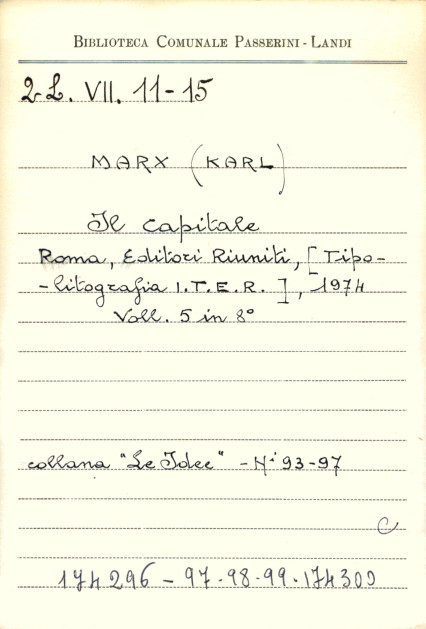 BIBLIOTECA COMUNALE PASSERINI-LANDI
2L. VII. 11-15
MARX (KARL)
Il capitale
Roma, Editori Riuniti, [Tipo-
-litografia I.T.E.R.], 1974
Voll. 5 in 8°
collana "Le Idee" - Nⁱ 93-97
C
174296 - 97-98-99-174300